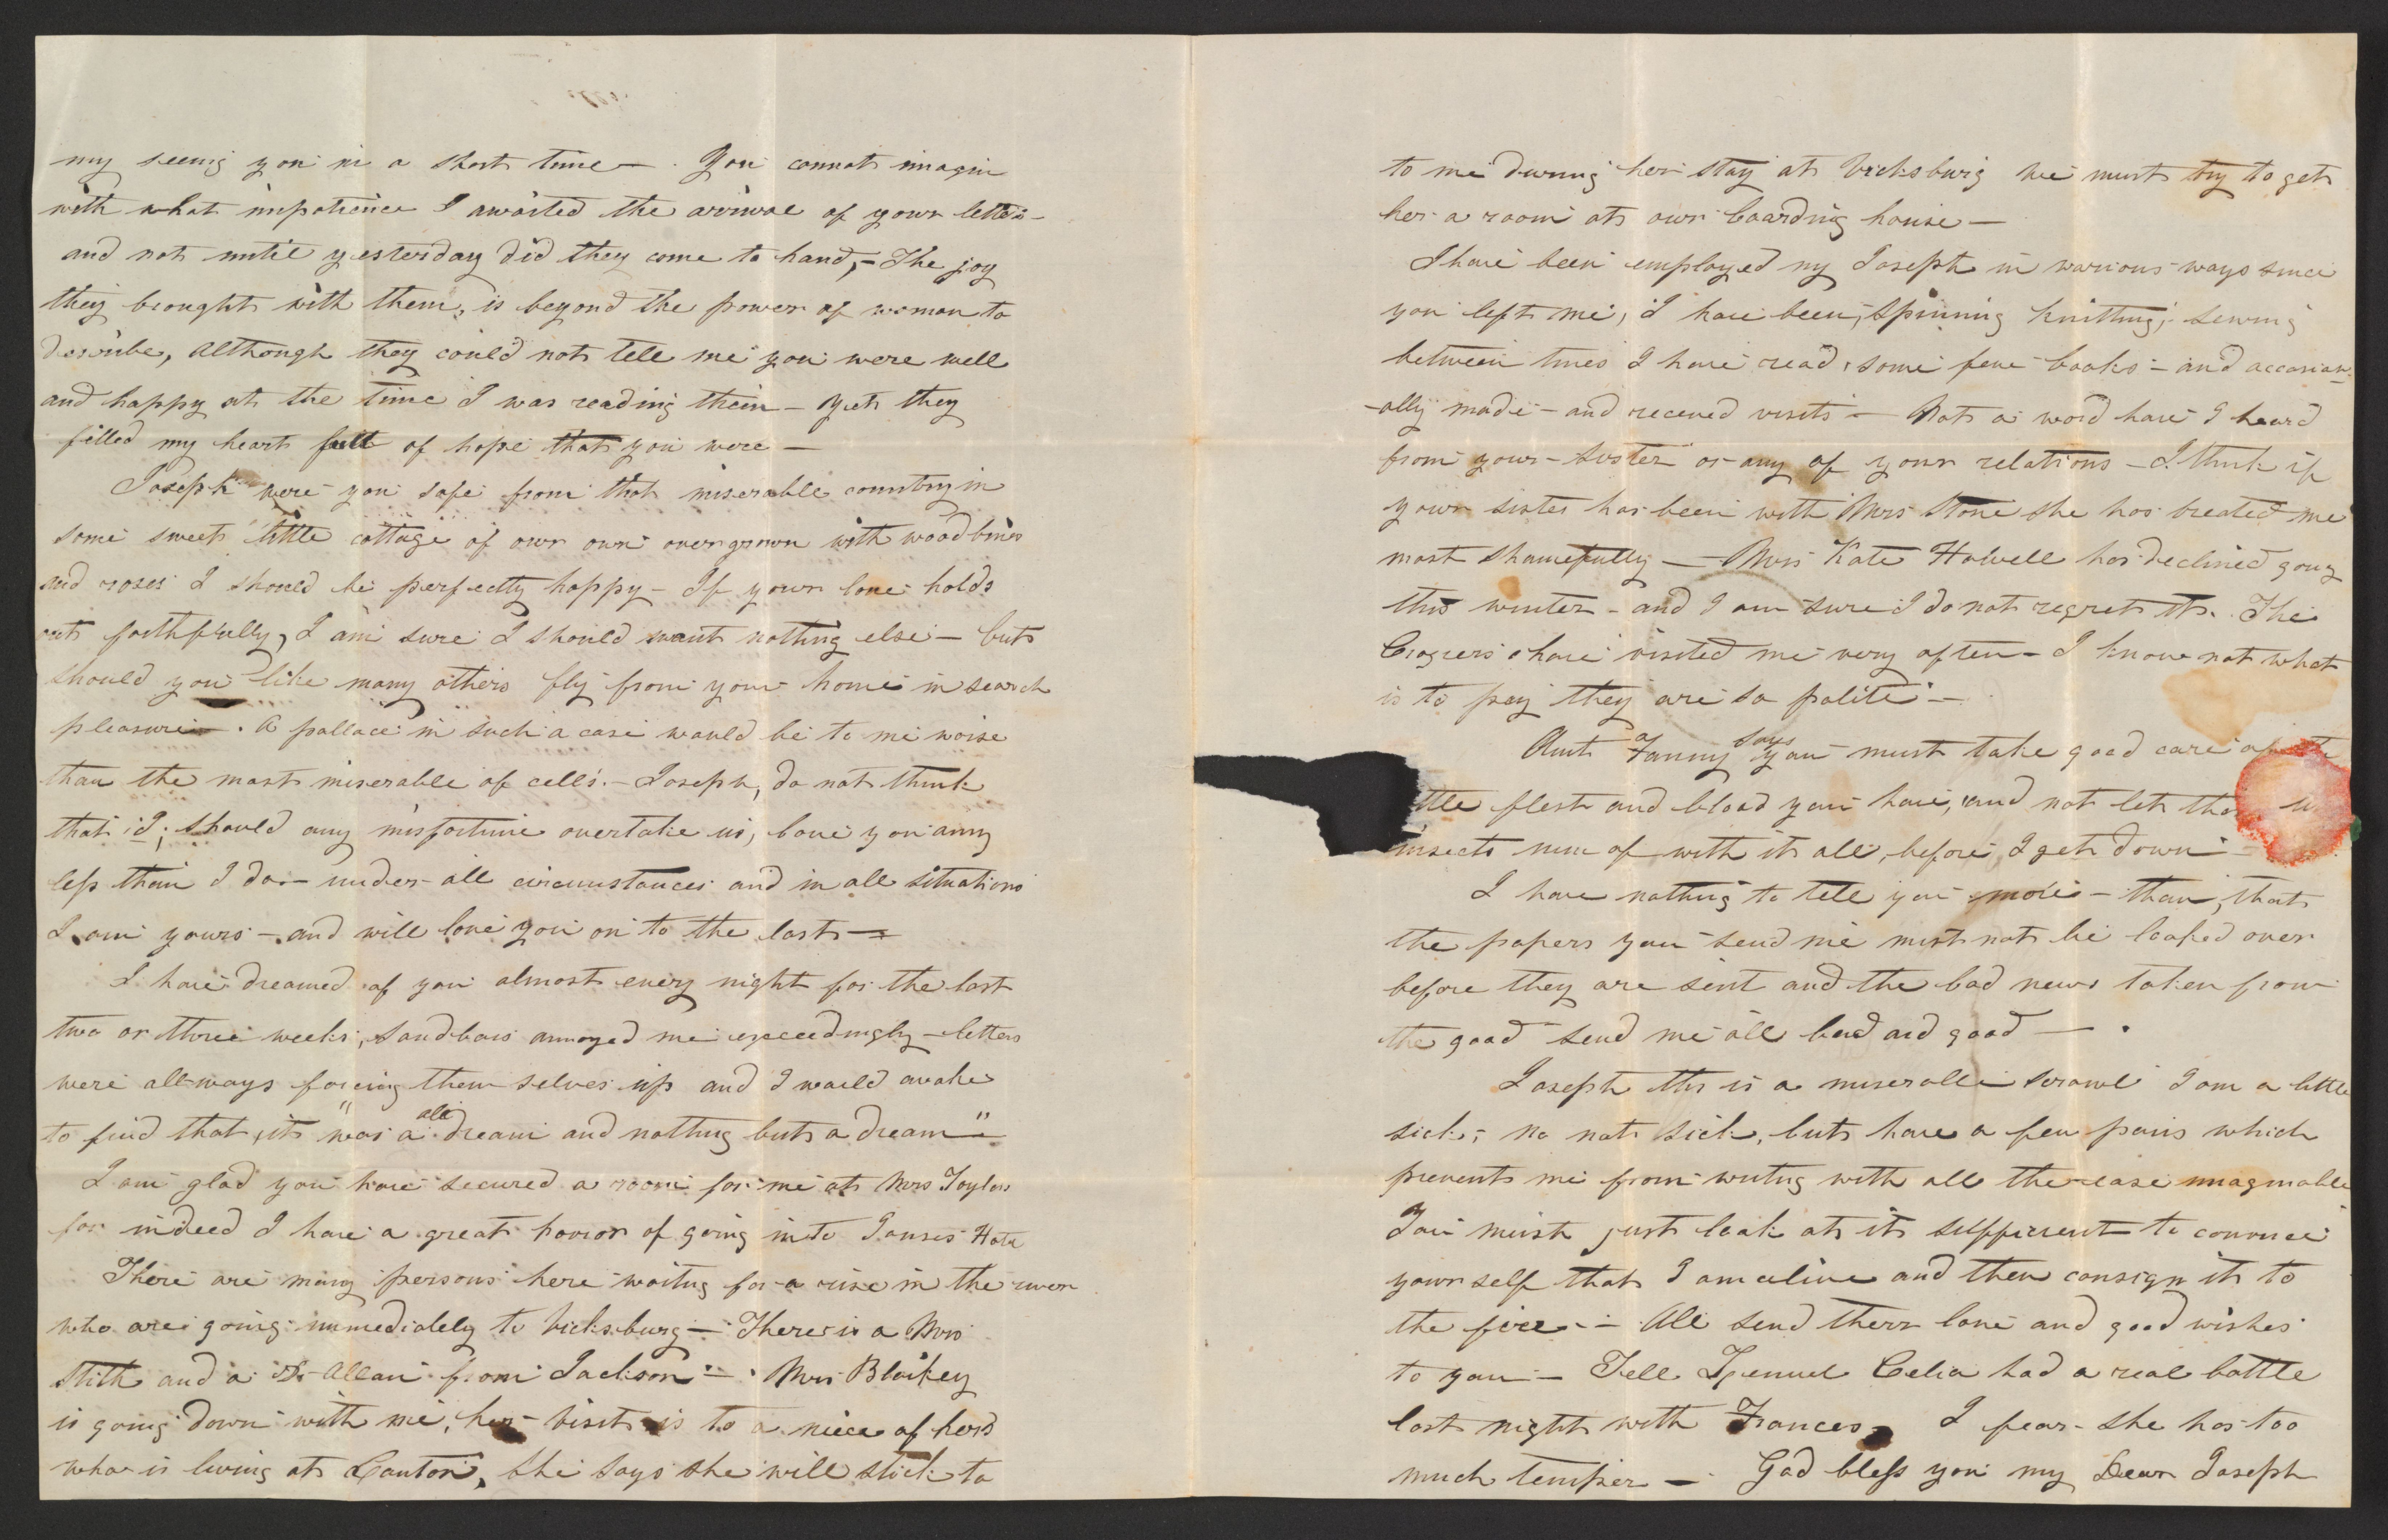 my seeing you in a short time —. You cannot imagin
with what impatience I awaited the arrival of your letters —
and not until yesterday did they come to hand, — The joy
they brought with them, is beyond the power of woman to
describe, although they could not tell me you were well
and happy at the time I was reading them — yet they
filled my heart full of hope that you were —
Joseph were you safe from that miserable country in
some sweet little cottage of our own overgrown with woodbines
and roses I should be perfectly happy — If your love holds
out faithfully, I am sure I should want nothing else — but
should you like many others fly from your home in search
pleasure —. A pallace in such a case would be to me worse
than the most miserable of cells. — Joseph, do not think
that I, should any misfortune overtake us, love you anny
less than I do — under all circumstances and in all situations
I am yours — and will love you on to the last —
I have dreamed of you almost every night for the last
two or three weeks, sandbars annoyed me exceedingly — letters
were allways forcing them selves up and I would awake
to find that, it "was all a dream and nothing but a dream" —
I am glad you have secured a room for me at Mrs Taylors
for indeed I have a great horror of going in to Hotel
There are many persons here waiting for a rise in the river
who are going immediately to Vicksburg — There is a Mrs
Stith and a Dr Allan from Jackson — . Mrs Blakey
is going down with me, her visit is to a niece of hers
who is living at Canton, she says she will stick to
to me during her stay at Vicksburg we must try to get
her a room at our boarding house —
I have been employed my Joseph in various ways since
you left me, I have been, spinning knitting, sewing
between times I have read some few books — and occasion-
-ally made — and received visits — Not a word have I heard
from your sister or any of your relations — I think if
your sister has been with Mrs Stone she has treated me
most shamefully — Mrs Kate Howell has declined going
this winter — and I am sure I do not regret it. The
have visited me very often — I know not what
is to pay they are so polite —
Aunt Fanny says you must take good care of the
ttle flesh and blood you have, and not let tho
insects run of with it all, before I get down —
I have nothing to tell you more — than, that
the papers you send me must not be looked over
before they are sent and the bad news taken from
the good send me all bad and good — .
Joseph this is a miserable scrawl I am a little
sick, no not sick, but have a few pains which
prevents me from writing with all the ease imaginable
You must just look at it sufficient to convince
your self that I am alive and then consign it to
the fire — All send their love and good wishes
to you — Tell Celia had a real battle
last night with Frances, I fear she has too
much temper — God bless you my Dear Joseph